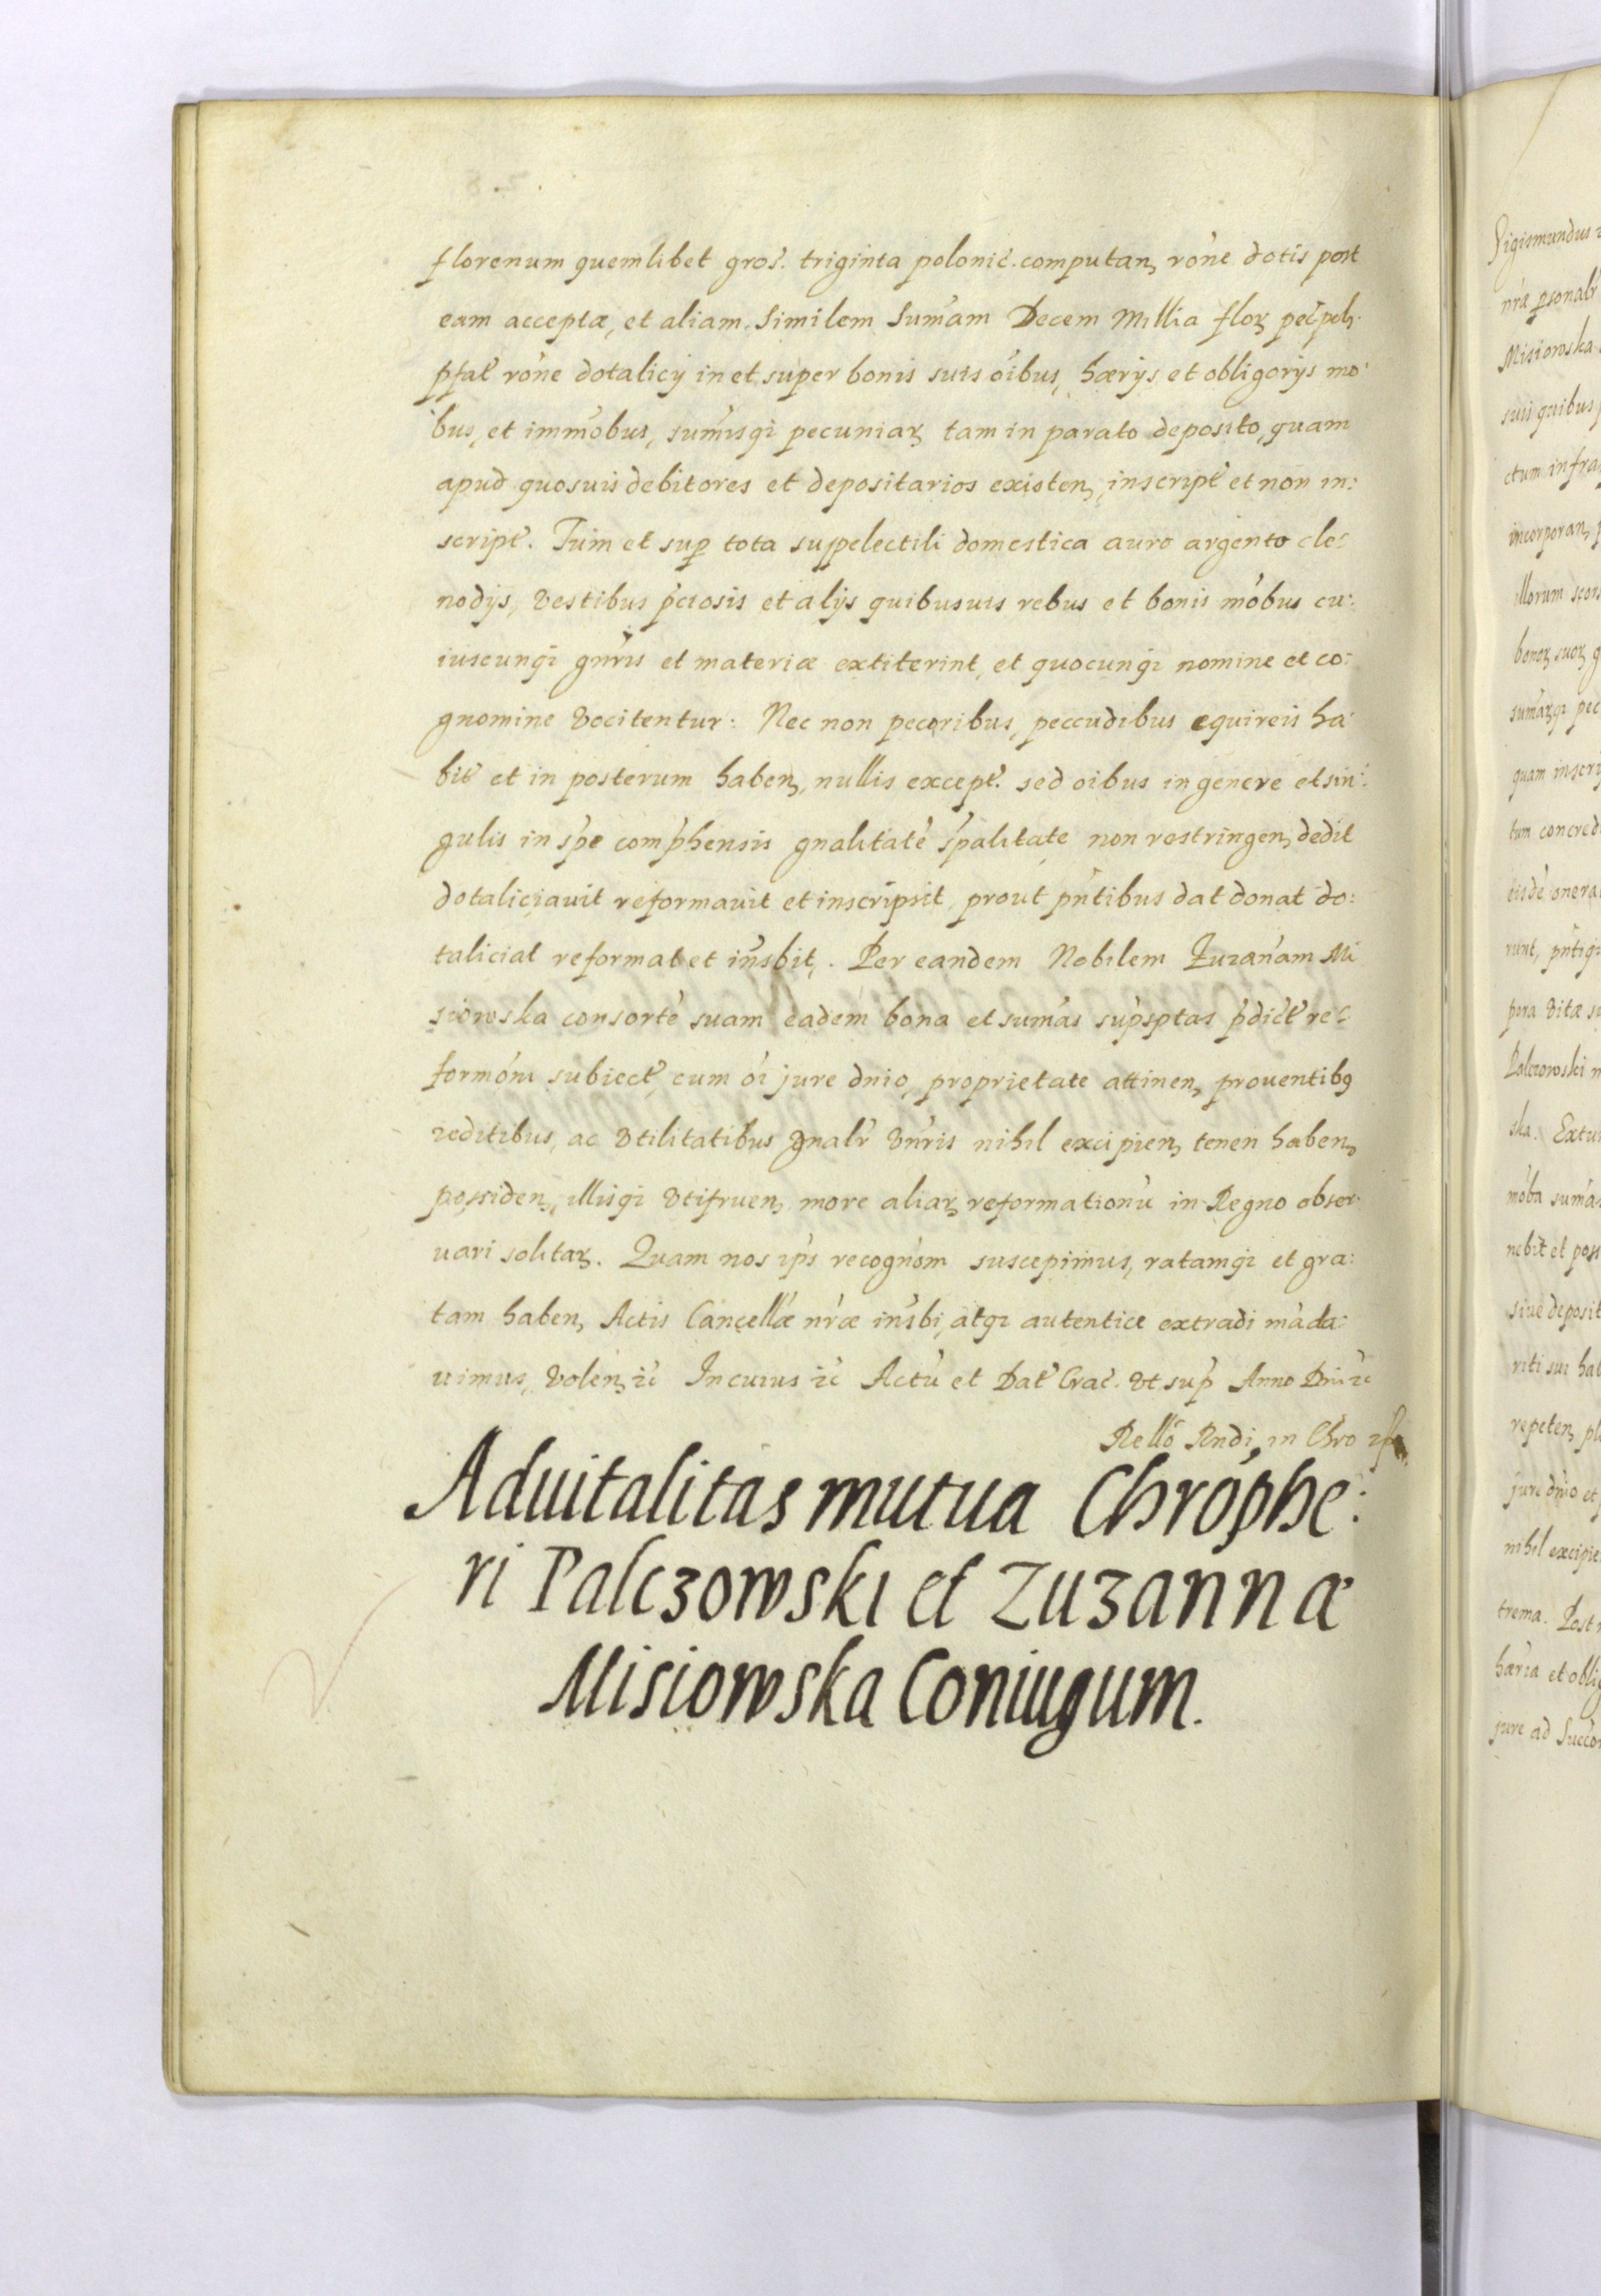 florenum quemlibet gros. triginta polonic. computan, rone dotis post
eam acceptæ, et aliam similem sumam Decem Millia flor pec pol.
pfat rone dotalicij in et super bonis suis oibus, hærijs et obligorijs mo
bus, et immobus, sumisqi pecuniar tam in parato deposito, quam
apud quosuis debitores et depositarios existen, inscript et non in:
script. Tum et sup tota suppelectili domestica auro argento cle:
nodijs, vestibus pciosis et alijs quibusuis rebus et bonis mobus cu:
iuscunqi gnris et materiæ extiterint, et quocunqi nomine et co:
gnomine vocitentur: Nec non pecoribus, peccudibus equireis ha
bit et in posterum haben, nullis except. sed oibus in genere et sin:
gulis in spe comphensis gnalitate spalitate non restringen, dedit
dotaliciauit reformauit et inscripsit, prout pntibus dat donat do:
taliciat reformat et insbit. Per eandem Nobilem Zuzanam Mi
siowska consorte suam eadem bona et sumas supsptas pdict re:
formoni subiect, cum oi jure dnio, proprietate attinen, prouentibq
reditibus, ac vtilitatibus gnalr vnris nihil excipien, tenen haben,
possiden, illisqi vtifruen, more aliar reformationu in Regno obser
uari solitar. Quam nos ips recognom suscepimus, ratamqi et gra:
tam haben, Actis Cancellæ nræ insbi, atqi autentice extradi mada:
uimus, volen, rc In cuius rc Actu et Dat Crac. vt sup Anno Dni rc
Rello Rndi in Chro
Aduitalitas mutua Chrophe:
ri Palczowski et Zuzannæ
Misiowska Coniugum.
Sigismundus
nra psonalr
Misiowska
suis quibus
ctum infra
incorporan,
illorum
bonor suor
sumarqi pec
quam inscri
tum concred
eisde onera
runt, pntiqi
pra vitæ su
Palczowski
ska. Extu
moba suma
nebit et poss
siue deposit
riti sui hab
repeten,
jure dnio et
nihil excipie
trema. Post
hæria et oblig
jure ad Succo